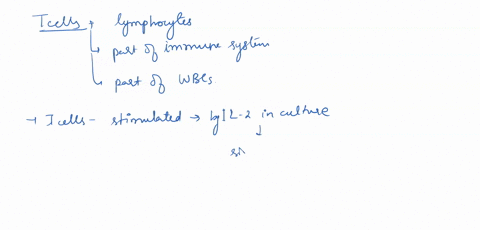 T cells → lymphocytes
→ part of immune system
→ part of WBCs.
→ T cells - stimulated → by IL-2 in culture
↓